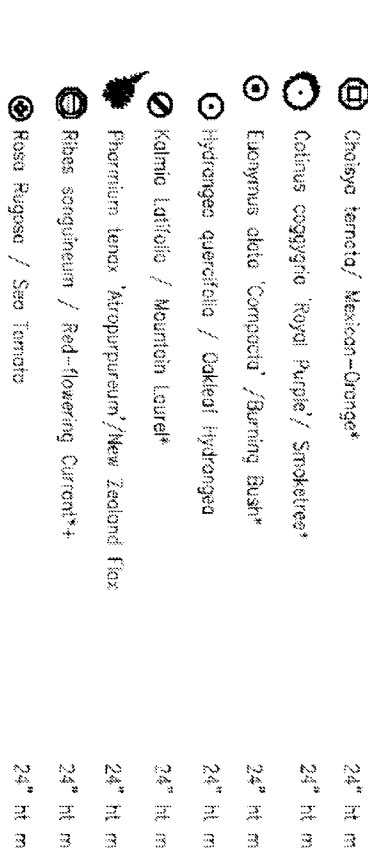 Choisya ternata/ Mexican-Orange* 24" ht m
Cotinus coggygria 'Royal Purple'/ Smoketree* 24" ht m
Euonymus alata 'Compacta' /Burning Bush* 24" ht m
Hydrangea quercifolia / Oakleaf Hydrangea 24" ht m
Kalmia Latifolia / Mountain Laurel* 24" ht m
Phormium tenax 'Atropurpureum'/New Zealand Flax 24" ht m
Ribes sanguineum / Red-flowering Current*+ 24" ht m
Rosa Rugosa / Sea Tomato 24" ht m